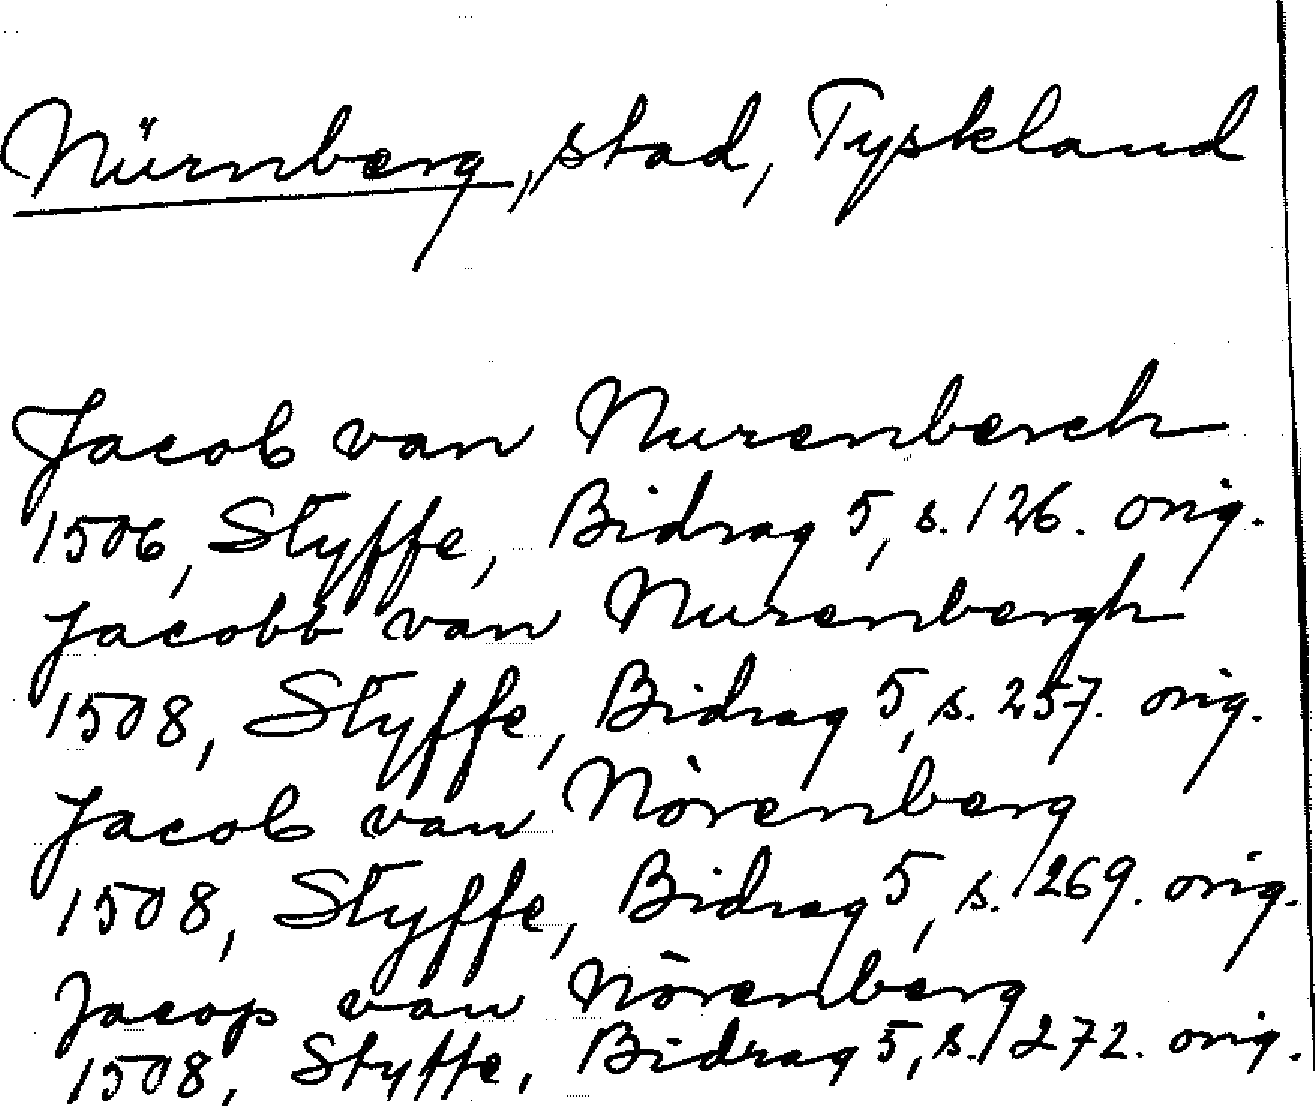 Nürnberg, stad, Tyskland
Jacob van Nurenberch
1506, Styffe, Bidrag 5, s. 126. orig.
Jacobb van Nurenbergh
1508, Styffe, Bidrag 5, s. 257. orig.
Jacob van Nörenberg
1508, Styffe, Bidrag 5, s. 269. orig.
Jacop van Nörenberg
1508, Styffe, Bidrag 5, s. 272. orig.